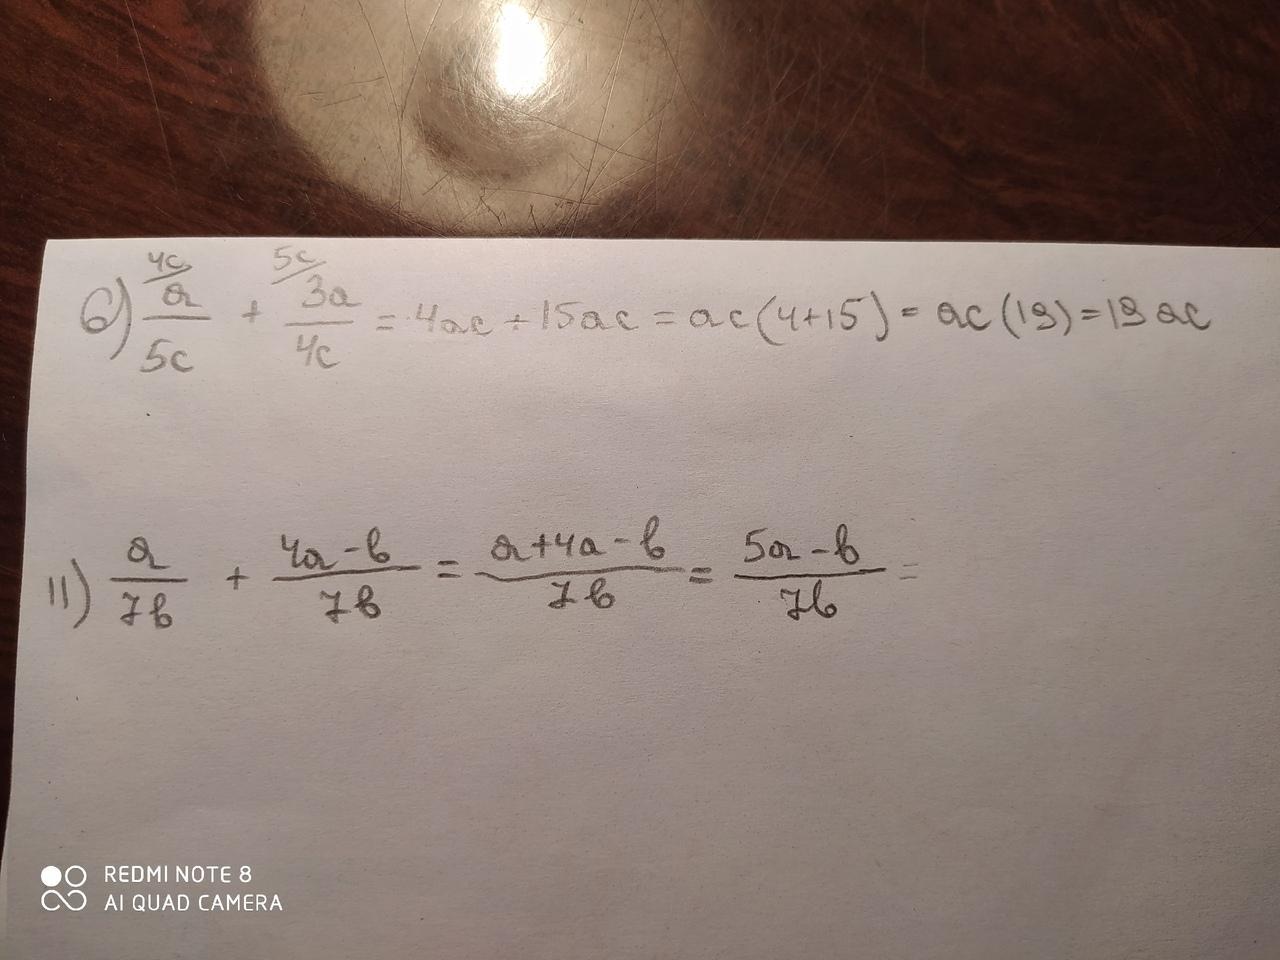 6) 4c/ a/5c + 5c/ 3a/4c = 4ac + 15ac = ac(4+15) = ac(19) = 19ac
11) a/7b + 4a-b/7b = a+4a-b/7b = 5a-b/7b =
REDMI NOTE 8
AI QUAD CAMERA